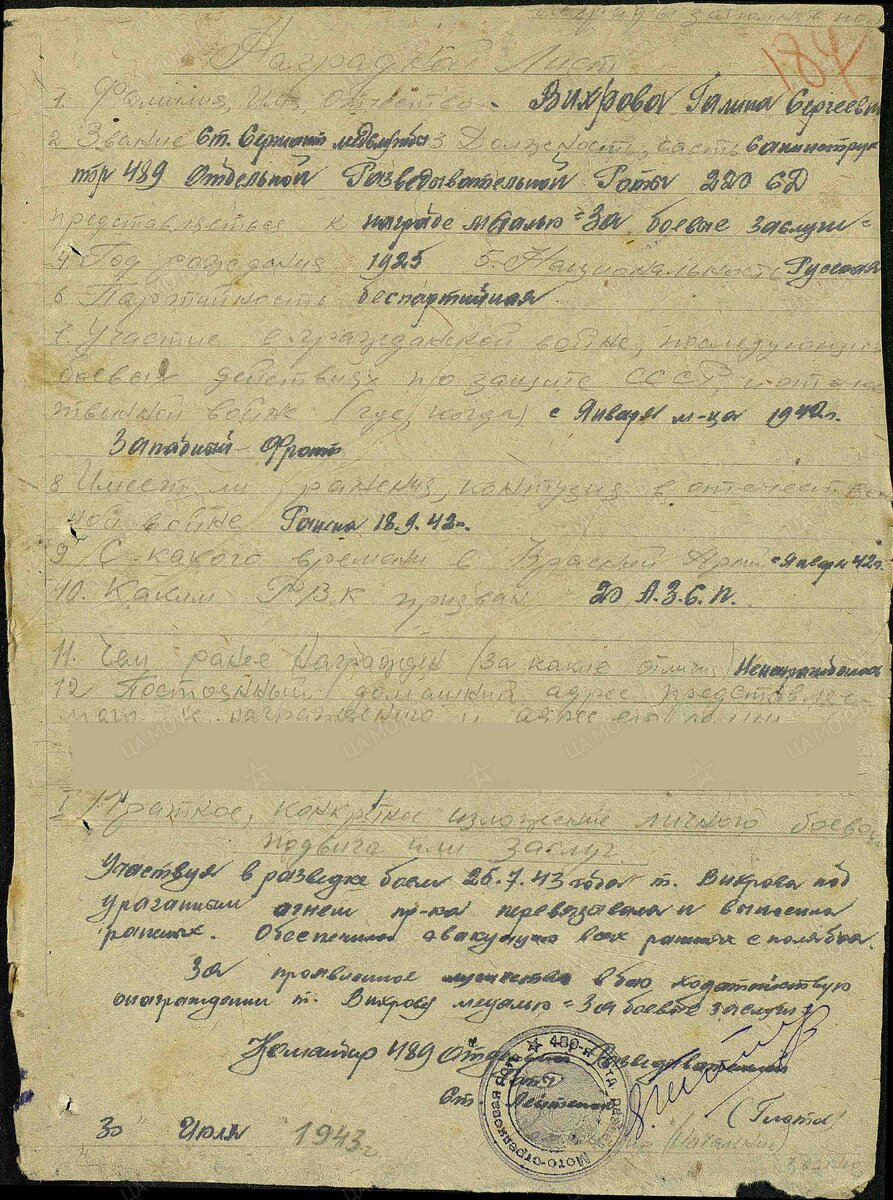 184
Наградной Лист
1. Фамилия, Имя, Отчество. Вихрова Галина Сергеевн
2 Звание Ст. Сержант медслужбы 3 Должность, часть Санинструк
тор 489 Отдельной Разведывательной Роты 220 СД
представляеться к награде медалью "За боевые заслуги"
4 Год рождения 1925 5. Национальность Русская
6 Партийность беспартийная
7. Участие в гражданской войне, последующих
боевых действиях по защите СССР, и отече
твенной войне (где, когда) с Января м-ца 1942г.
Западный Фронт
8 Имеет ли ранения, контузия в отечествен
ной войне Ранена 18.9.42г.
9 С какого времени в Красной Армии с Января 42г.
10. Каким Р.В.К призван 20 А.З.С.П.
11. Чем ранее награжден (за какие отличия) Ненаграждалась
12 Постоянный домашний адрес представляе-
мого к награждению и адрес его семьи
I Краткое, конкретное изложение личного боево
подвига или заслуг
Участвуя в разведке боем 26.7.43 года т. Вихрова под
ураганным огнем пр-ка перевязывала и выносила
раненых. Обеспечила эвакуацию всех раненых с поля боя.
За проявленное мужество в бою ходатайствую
о награждении т. Вихрову медалью "За боевые заслуги"
Командир 489 Отдельной Разведывательной
Роты
Ст. Лейтенант
30 Июля 1943г.
Мото-стрелковая рота
ЦА МО РФ